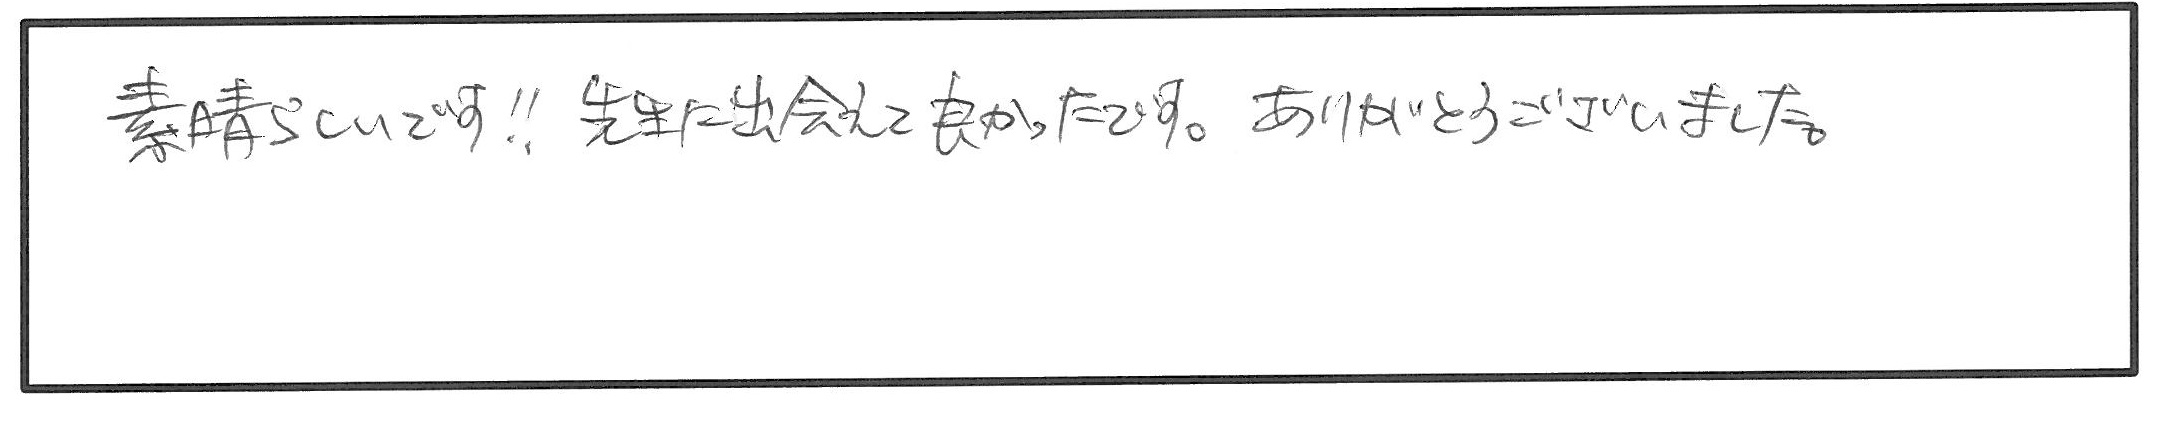 素晴らしいです!! 先生に出会えて良かったです。ありがとうございました。